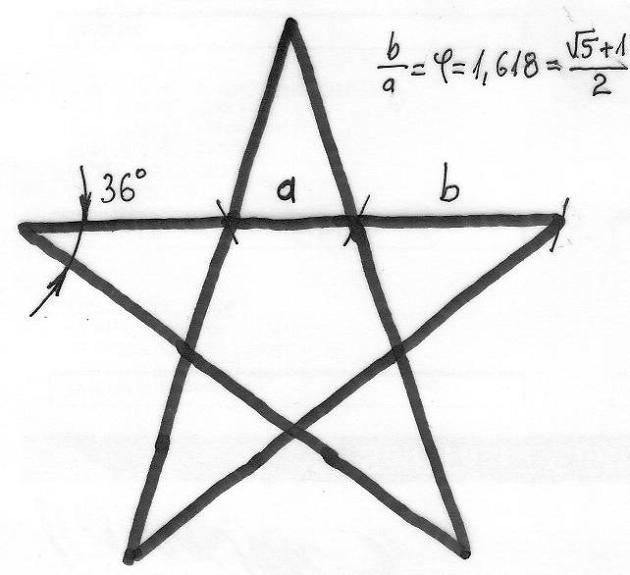 b/a = φ = 1,618 = √5+1/2
36°
a
b